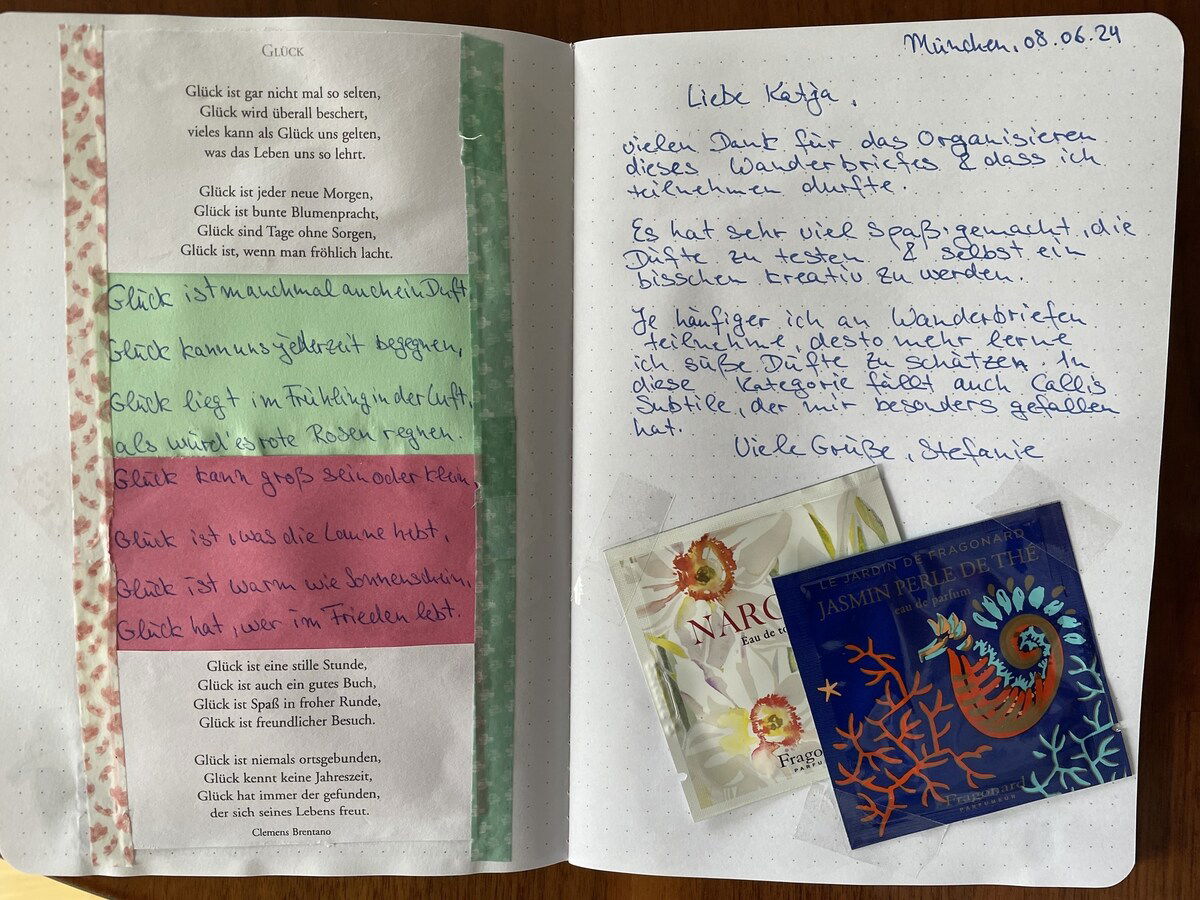 GLÜCK
Glück ist gar nicht mal so selten,
Glück wird überall beschert,
vieles kann als Glück uns gelten,
was das Leben uns so lehrt.
Glück ist jeder neue Morgen,
Glück ist bunte Blumenpracht,
Glück sind Tage ohne Sorgen,
Glück ist, wenn man fröhlich lacht.
Glück ist manchmal auch ein Duft
Glück kann uns jederzeit begegnen,
Glück liegt im Frühling in der Luft,
als würd' es rote Rosen regnen.
Glück kann groß sein oder klein,
Glück ist, was die Laune hebt,
Glück ist warm wie Sonnenschein,
Glück hat, wer im Frieden lebt.
Glück ist eine stille Stunde,
Glück ist auch ein gutes Buch,
Glück ist Spaß in froher Runde,
Glück ist freundlicher Besuch.
Glück ist niemals ortsgebunden,
Glück kennt keine Jahreszeit,
Glück hat immer der gefunden,
der sich seines Lebens freut.
Clemens Brentano
München, 08.06.24
Liebe Katja,
vielen Dank für das Organisieren
dieses Wanderbriefes & dass ich
teilnehmen durfte.
Es hat sehr viel Spaß gemacht, die
Düfte zu testen & selbst ein
bisschen kreativ zu werden.
Je häufiger ich an Wanderbriefen
teilnehme, desto mehr lerne
ich süße Düfte zu schätzen. In
diese Kategorie fällt auch Callis
Subtile, der mir besonders gefallen
hat.
Viele Grüße, Stefanie
NARC
Eau de to
Frago
PARFU
LE JARDIN DE FRAGONARD
JASMIN PERLE DE THÉ
eau de parfum
Fragonard
PARFUMEUR